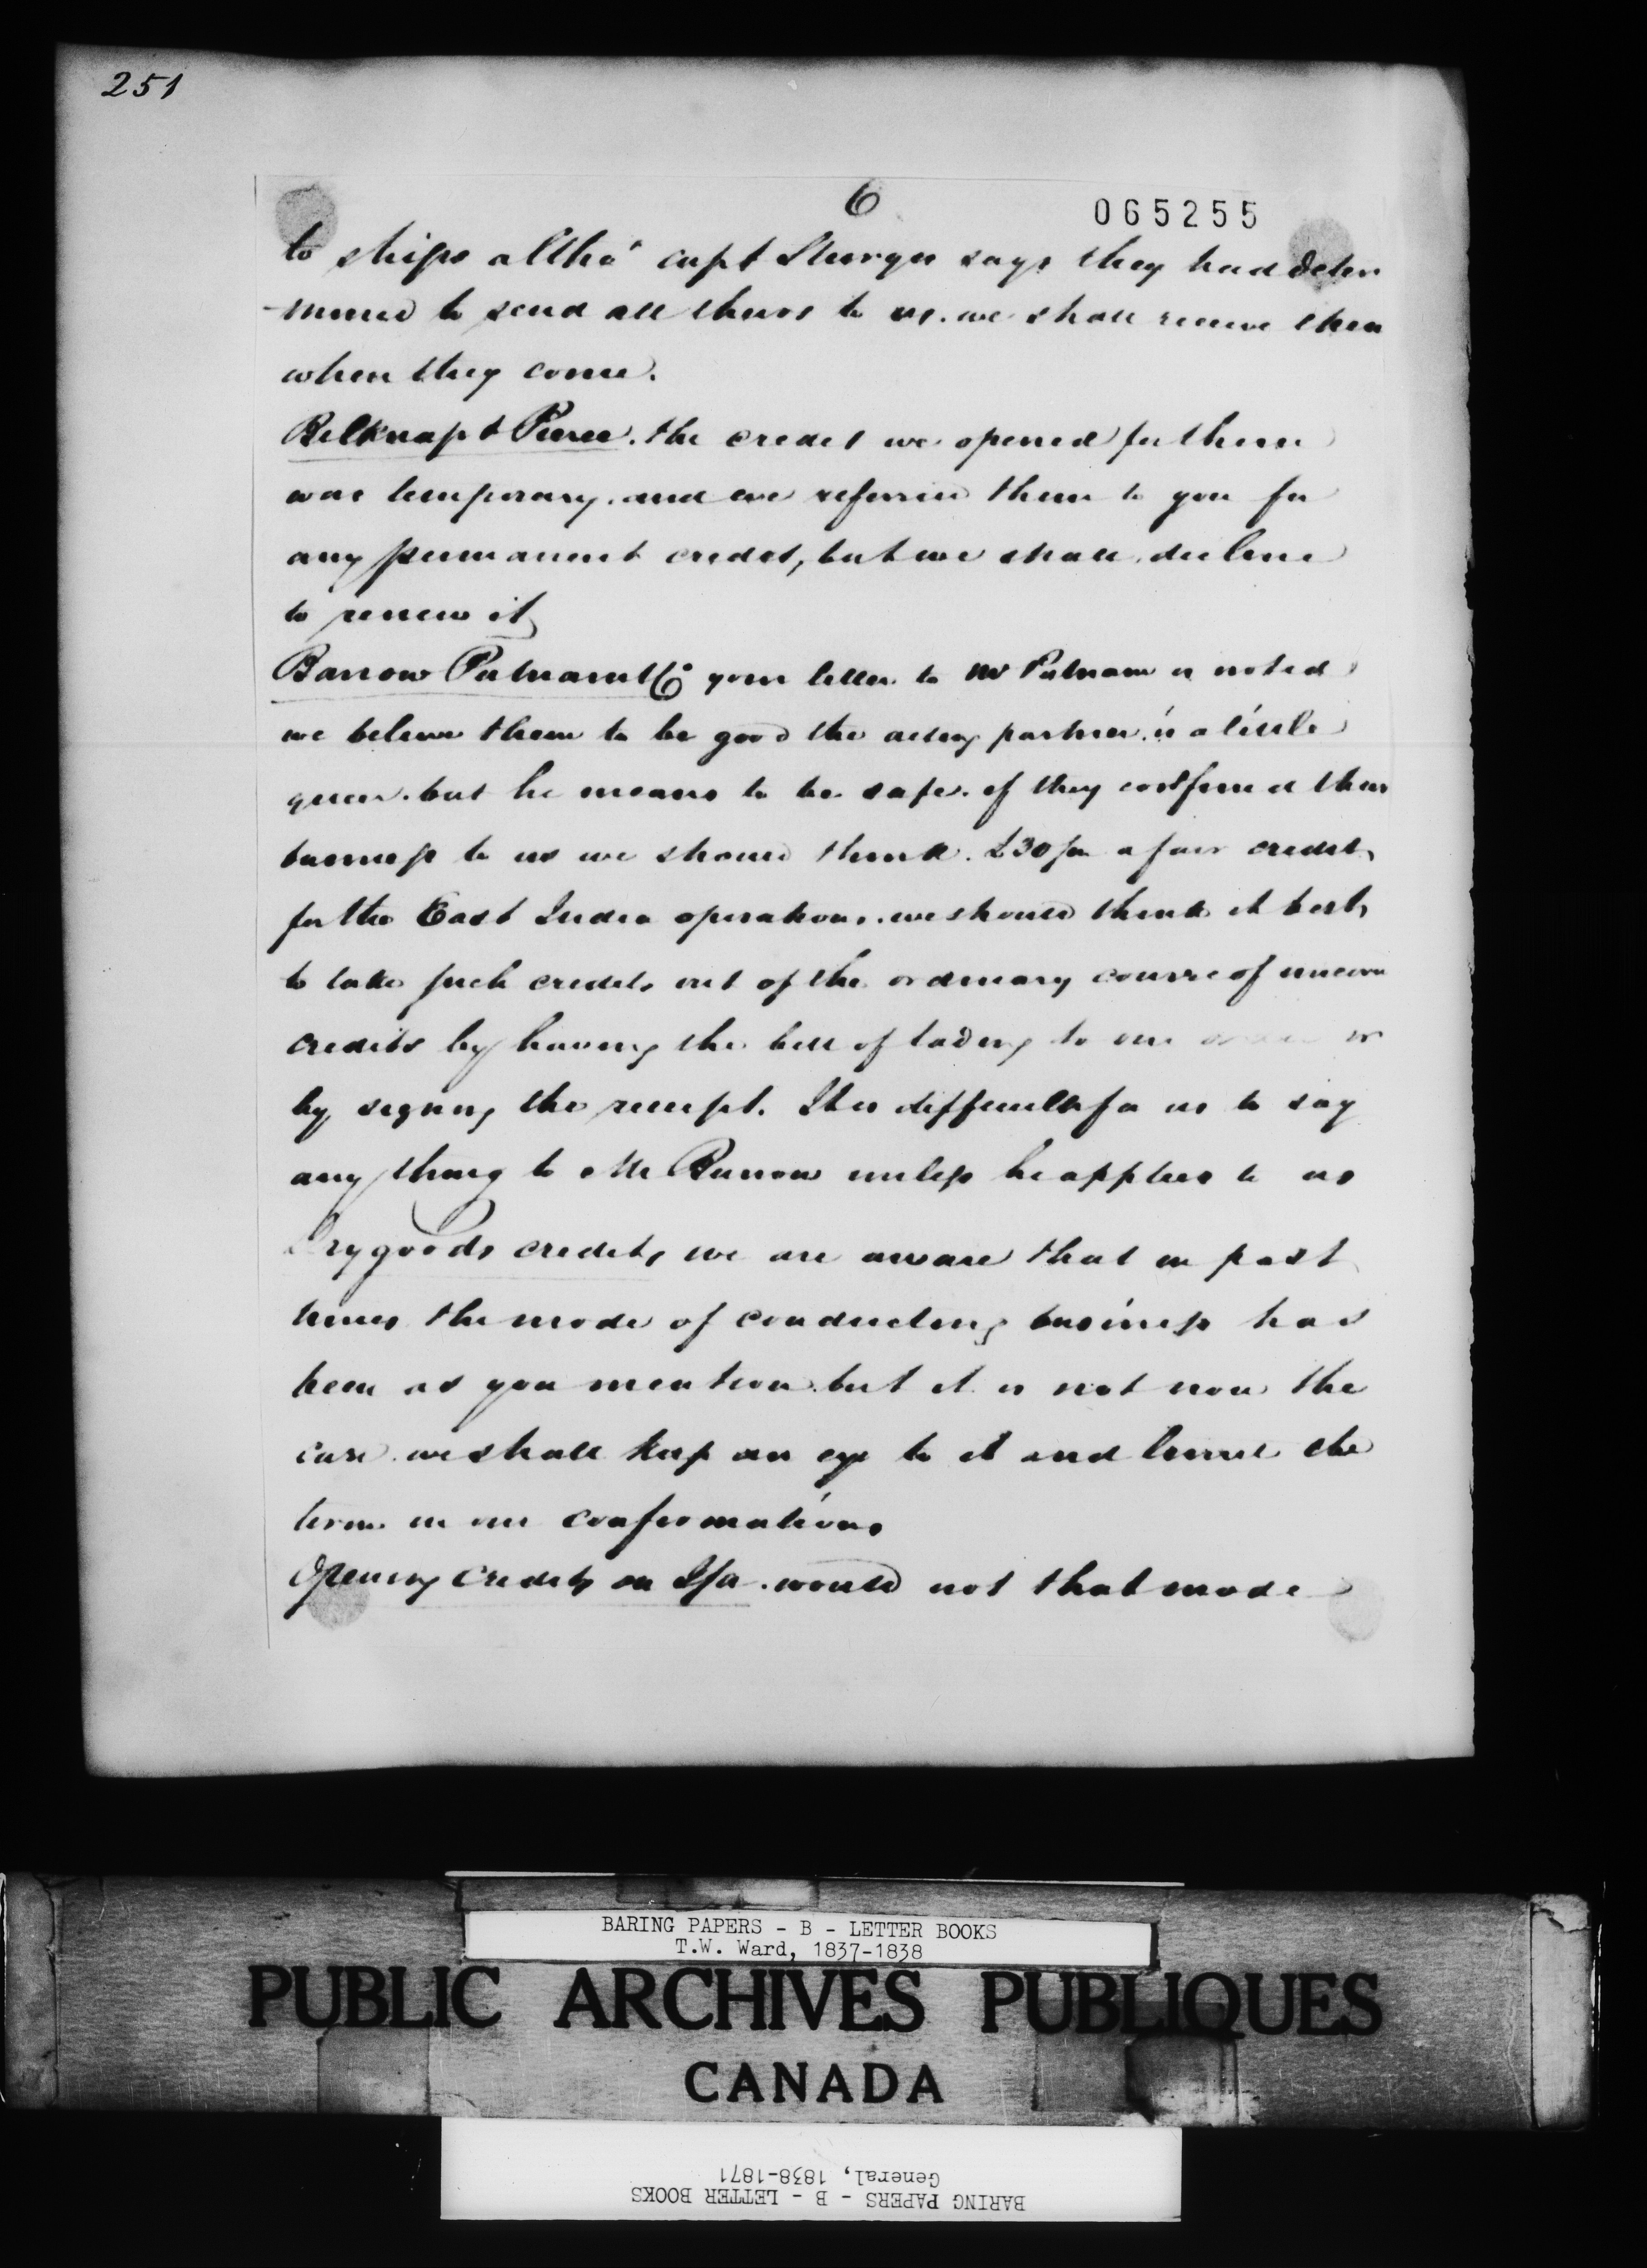 251
6
065255
to ships altho' capt Sturgis says they had deter
-mined to send all theirs to us. we shall receive them
when they come.
Belknap & Pierce. the credit we opened for them
was temporary. and we referred them to you for
any permanent credit, but we shall decline
to renew it
Barrow Putnam & Co your letter to Mr Putnam is noted
we believe them to be good the acting partner is a little
queer. but he means to be safe. if they confined their
business to us we should think £30/m a fair credit
for the East India operations. we should think it best
to take such credits out of the ordinary course of uncov
credits by having the bill of lading to our or
by signing the receipt. It is difficult for us to say
any thing to Mr Barrow unless he applies to us
Dry goods credits we are aware that in past
times the mode of conducting business has
been as you mention. but it is not now the
case. we shall keep an eye to it and limit the
terms in our confirmations
Opening Credits on would not that mode
BARING PAPERS - B - LETTER BOOKS
T.W. Ward, 1837-1838
PUBLIC ARCHIVES PUBLIQUES
CANADA
BARING PAPERS - B - LETTER BOOKS
General, 1838-1871